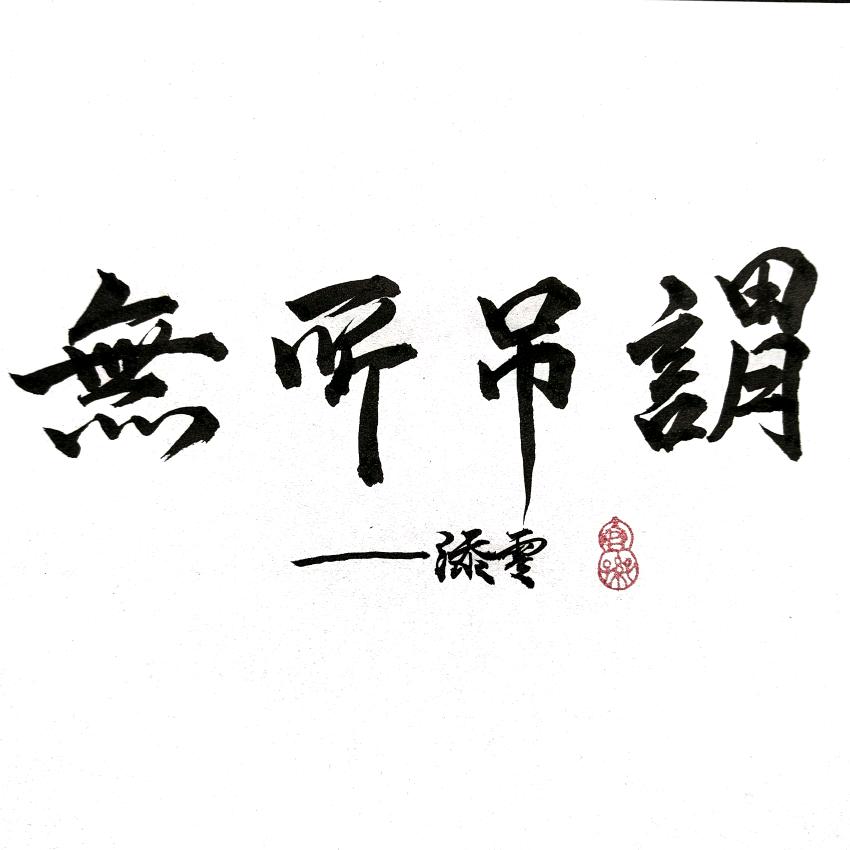 無所吊謂
——添雲